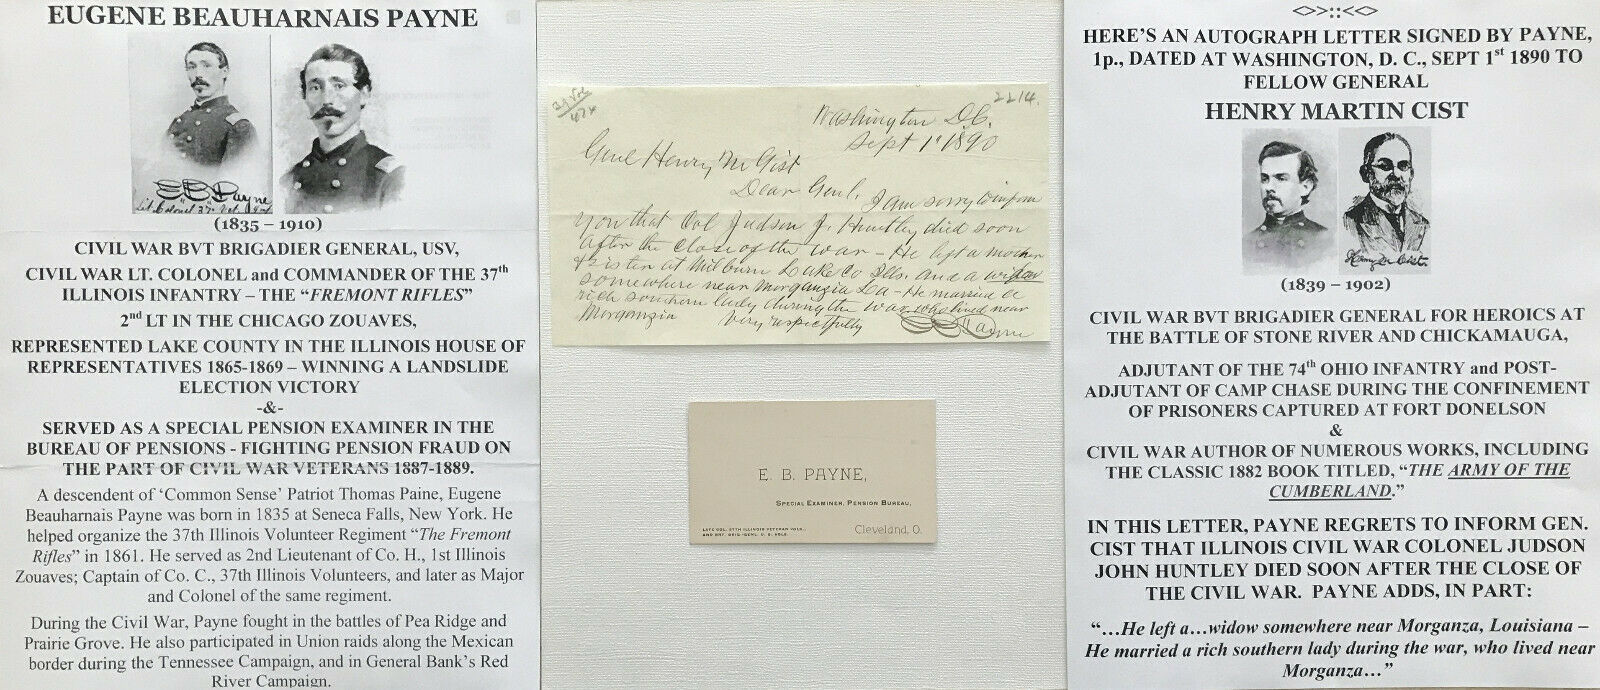 EUGENE BEAUHARNAIS PAYNE
E B Payne
Lt. Colonel 37" Vol.
(1835 – 1910)
CIVIL WAR BVT BRIGADIER GENERAL, USV,
CIVIL WAR LT. COLONEL and COMMANDER OF THE 37th
ILLINOIS INFANTRY – THE “FREMONT RIFLES”
2nd LT IN THE CHICAGO ZOUAVES,
REPRESENTED LAKE COUNTY IN THE ILLINOIS HOUSE OF
REPRESENTATIVES 1865-1869 – WINNING A LANDSLIDE
ELECTION VICTORY
-&-
SERVED AS A SPECIAL PENSION EXAMINER IN THE
BUREAU OF PENSIONS - FIGHTING PENSION FRAUD ON
THE PART OF CIVIL WAR VETERANS 1887-1889.
A descendent of ‘Common Sense’ Patriot Thomas Paine, Eugene
Beauharnais Payne was born in 1835 at Seneca Falls, New York. He
helped organize the 37th Illinois Volunteer Regiment “The Fremont
Rifles” in 1861. He served as 2nd Lieutenant of Co. H., 1st Illinois
Zouaves; Captain of Co. C., 37th Illinois Volunteers, and later as Major
and Colonel of the same regiment.
During the Civil War, Payne fought in the battles of Pea Ridge and
Prairie Grove. He also participated in Union raids along the Mexican
border during the Tennessee Campaign, and in General Bank’s Red
River Campaign.
2214.
Washington D.C.
Sept 1" 1890
Genl Henry M Cist
Dear Genl.
I am sorry to inform
you that Col Judson J. Huntley died soon
after the close of the war – He left a mother
& sister at Milburn Lake Co Ills. and a widow
somewhere near Morganzia La – He married a
rich southern lady during the war who lived near
Morganzia
Very respectfully
E B Payne
E. B. PAYNE,
SPECIAL EXAMINER, PENSION BUREAU,
LATE COL. 37TH ILLINOIS VETERAN VOLS.,
AND BVT. BRIG.-GENL. U. S. VOLS.
Cleveland, O.
<>>::<<>
HERE’S AN AUTOGRAPH LETTER SIGNED BY PAYNE,
1p., DATED AT WASHINGTON, D. C., SEPT 1st 1890 TO
FELLOW GENERAL
HENRY MARTIN CIST
Henry M Cist.
(1839 – 1902)
CIVIL WAR BVT BRIGADIER GENERAL FOR HEROICS AT
THE BATTLE OF STONE RIVER AND CHICKAMAUGA,
ADJUTANT OF THE 74th OHIO INFANTRY and POST-
ADJUTANT OF CAMP CHASE DURING THE CONFINEMENT
OF PRISONERS CAPTURED AT FORT DONELSON
&
CIVIL WAR AUTHOR OF NUMEROUS WORKS, INCLUDING
THE CLASSIC 1882 BOOK TITLED, “THE ARMY OF THE
CUMBERLAND.”
IN THIS LETTER, PAYNE REGRETS TO INFORM GEN.
CIST THAT ILLINOIS CIVIL WAR COLONEL JUDSON
JOHN HUNTLEY DIED SOON AFTER THE CLOSE OF
THE CIVIL WAR. PAYNE ADDS, IN PART:
“…He left a…widow somewhere near Morganza, Louisiana –
He married a rich southern lady during the war, who lived near
Morganza…”